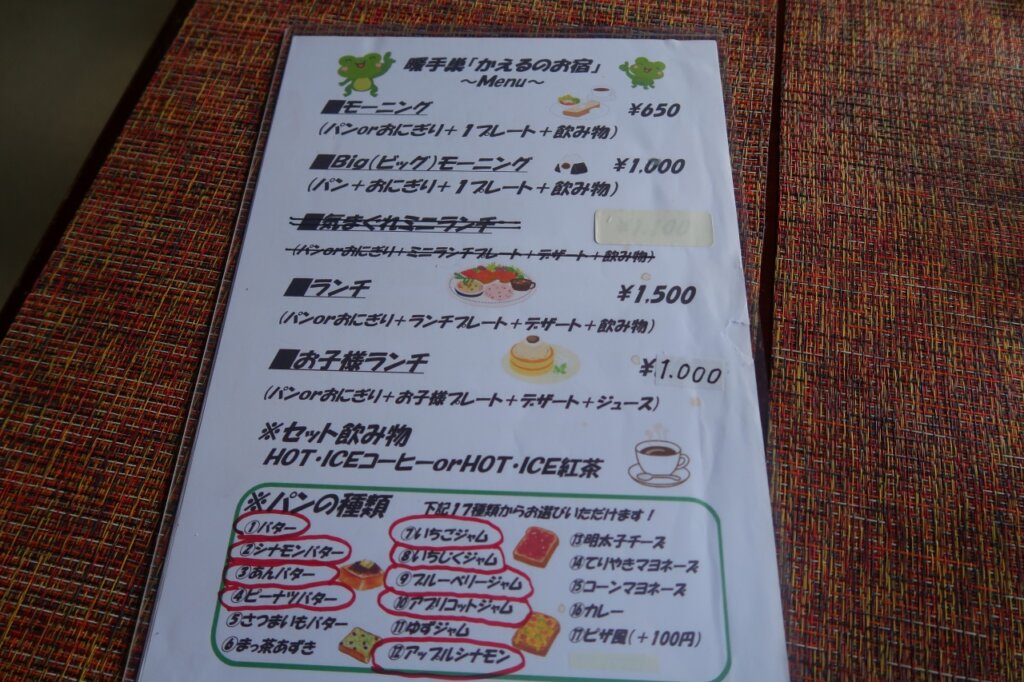 暖手巣「かえるのお宿」
～Menu～
■モーニング ¥650
(パンorおにぎり+1プレート+飲み物)
■Big(ビッグ)モーニング ¥1.000
(パン+おにぎり+1プレート+飲み物)
■気まぐれミニランチ
(パンorおにぎり+ミニランチプレート+デザート+飲み物)
■ランチ ¥1.500
(パンorおにぎり+ランチプレート+デザート+飲み物)
■お子様ランチ ¥1.000
(パンorおにぎり+お子様プレート+デザート+ジュース)
※セット飲み物
HOT・ICEコーヒーorHOT・ICE紅茶
※パンの種類 下記17種類からお選びいただけます！
①バター
②シナモンバター
③あんバター
④ピーナツバター
⑤さつまいもバター
⑥まっ茶あずき
⑦いちごジャム
⑧いちじくジャム
⑨ブルーベリージャム
⑩アプリコットジャム
⑪ゆずジャム
⑫アップルシナモン
⑬明太子チーズ
⑭てりやきマヨネーズ
⑮コーンマヨネーズ
⑯カレー
⑰ピザ風(+100円)